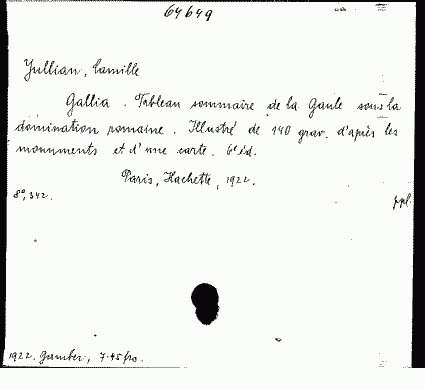 64649
Jullian, Camille
Gallia. Tableau sommaire de la Gaule sous la
domination romaine. Illustré de 140 grav. d'après les
monuments et d'une carte. 6e éd.
Paris, Hachette, 1922.
8°, 342. ppl.
1922. Gamber, 7.45 frs.